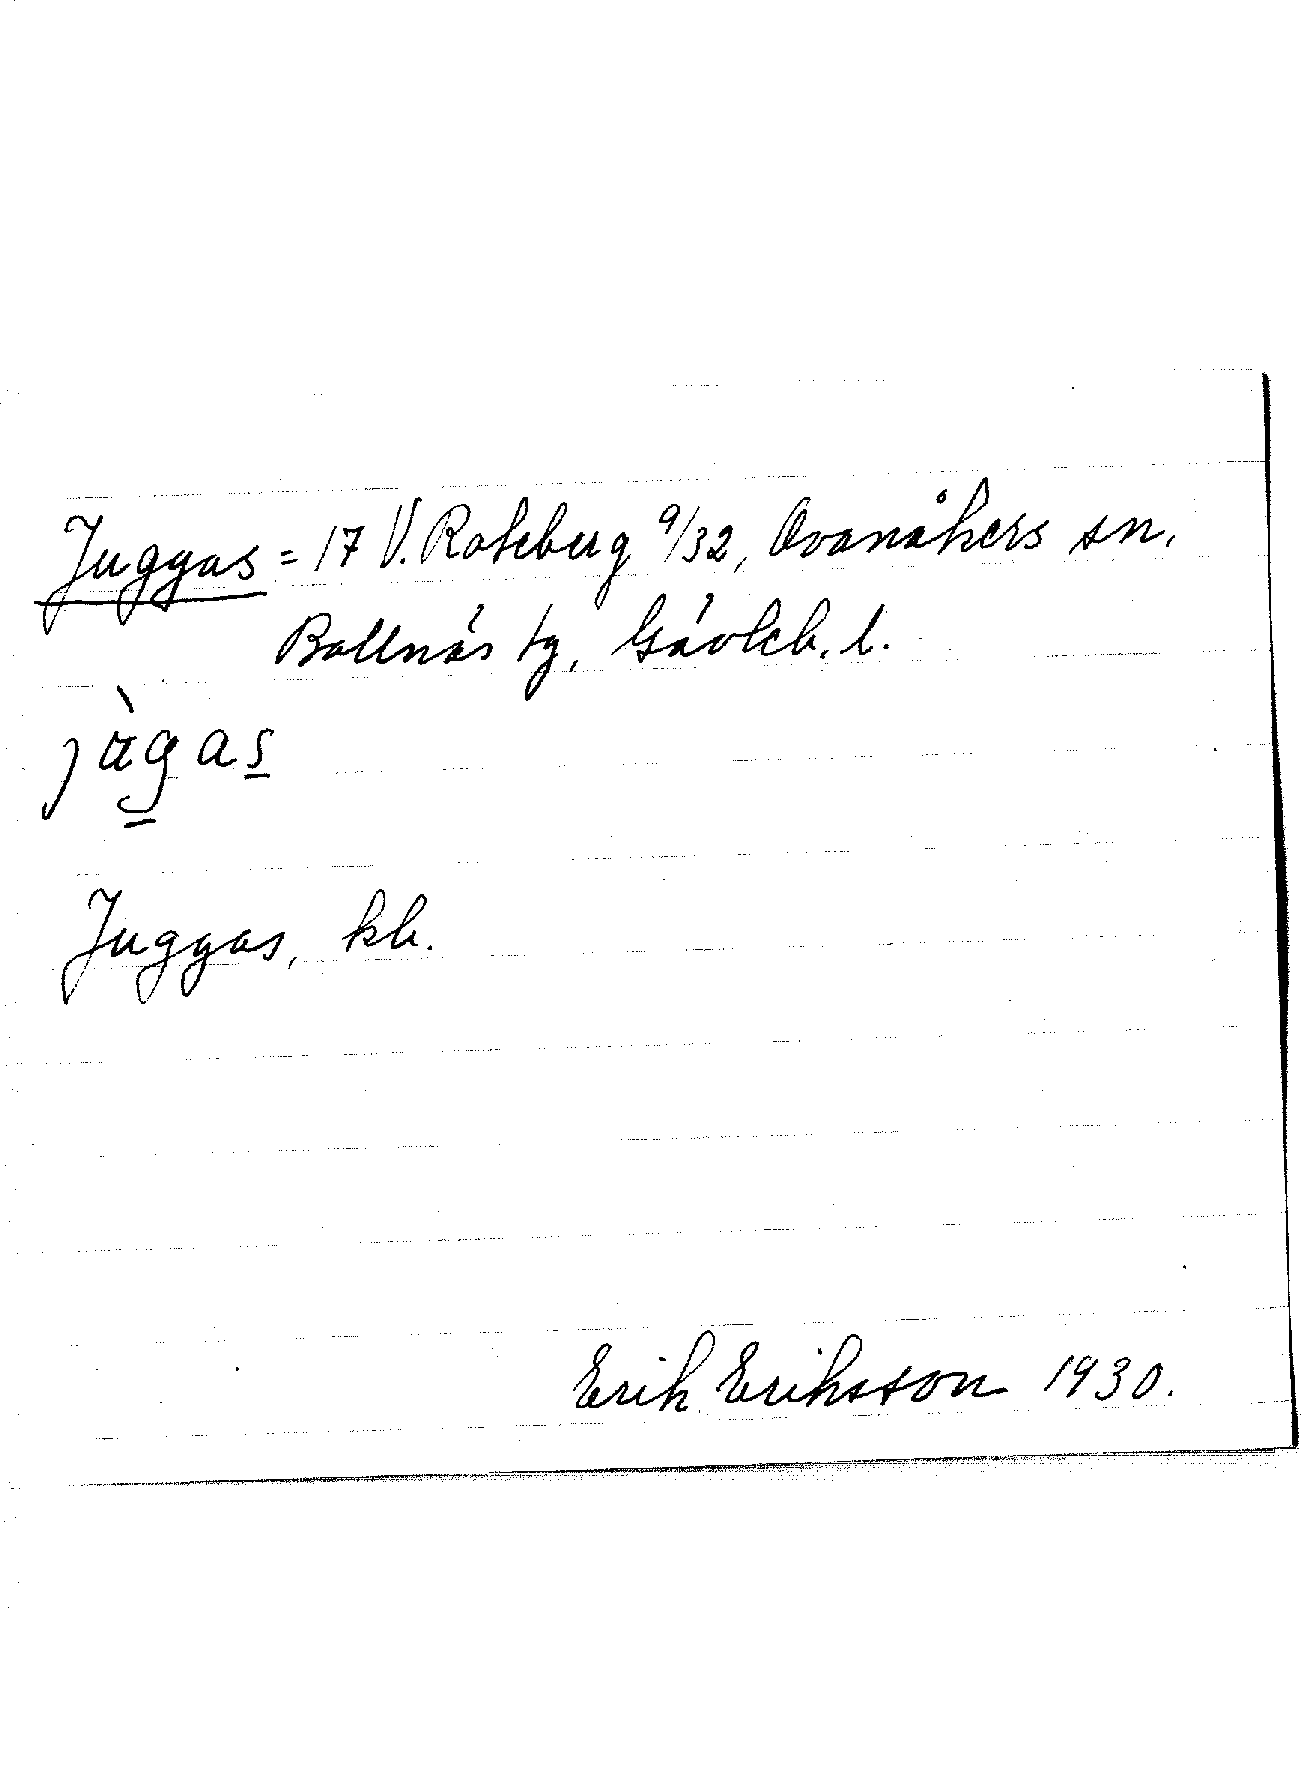 Juggas = 17 V. Roteberg 9/32, Ovanåkers sn,
Bollnäs tg, Gävleb. l.
Juggas, kb.
Erik Eriksson 1930.